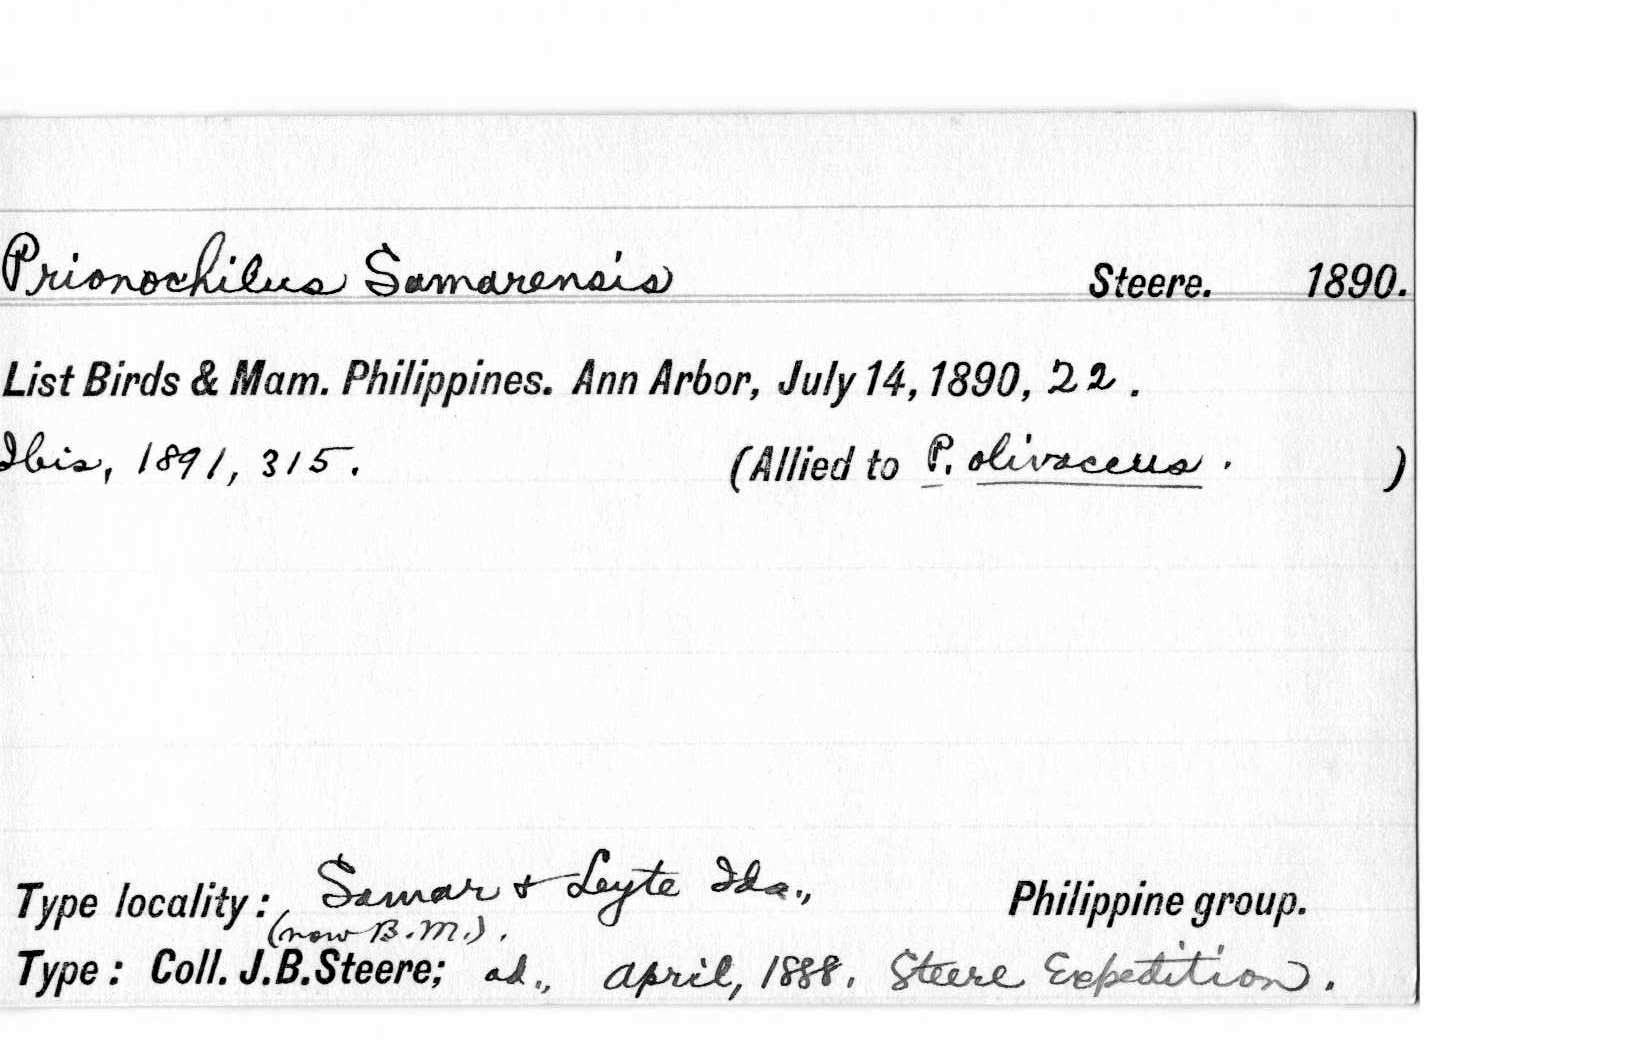 Prionochilus Samarensis Steere. 1890.
List Birds & Mam. Philippines. Ann Arbor, July 14, 1890, 22.
Ibis, 1891, 315. (Allied to P. olivaceus. )
Type locality: Samar & Leyte Ids., Philippine group.
(now B.M.).
Type: Coll. J.B.Steere; ad., April, 1888. Steere Expedition.